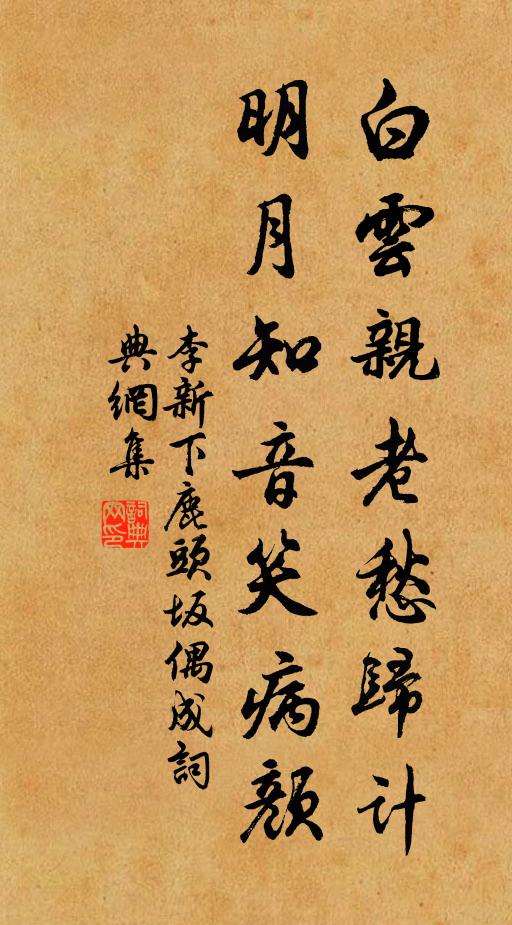 白雲親老愁歸計
明月知音笑病顏
李新下鹿頭坂偶成詞
典網集
詞典網印